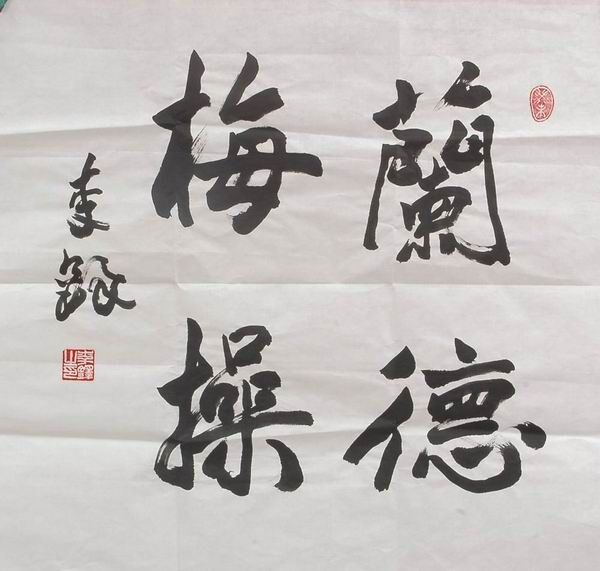 蘭德
梅操
李鐸